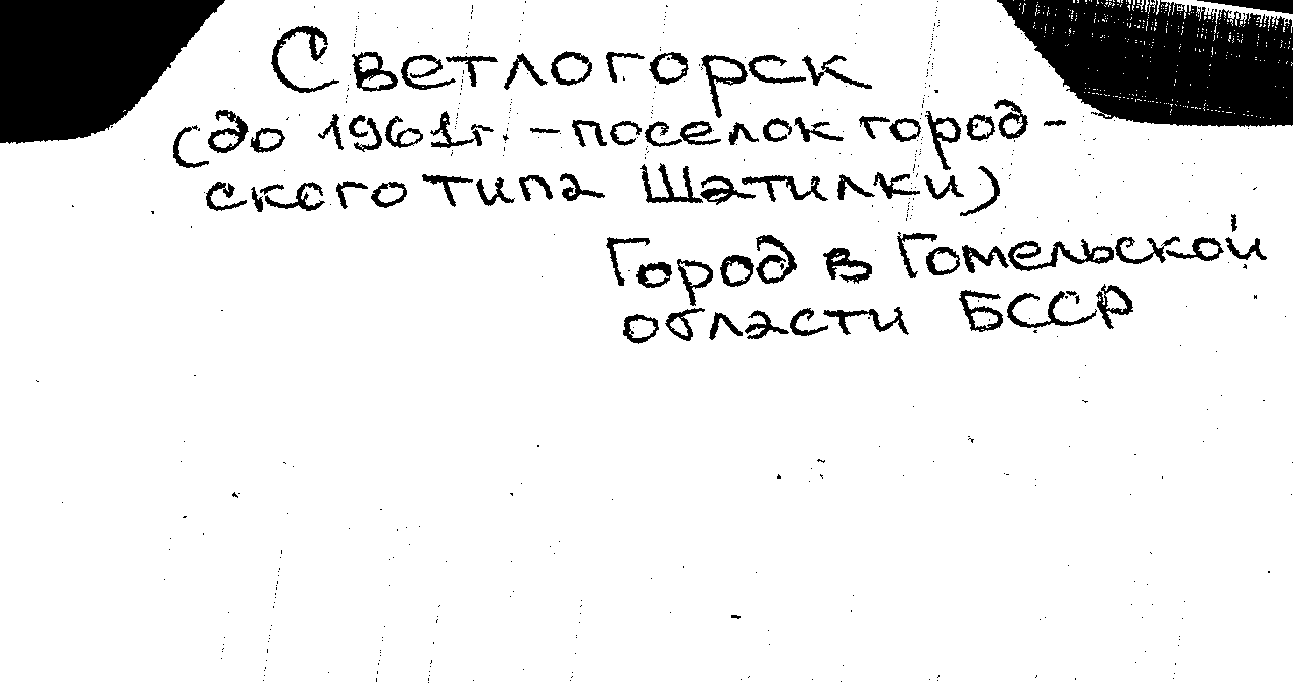 Светлогорск
(до 1961г. - поселок город-
ского типа Шатилки)
Город в Гомельской
области БССР